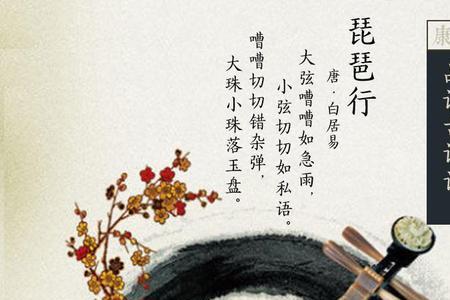 琵琶行
唐·白居易
大弦嘈嘈如急雨，
小弦切切如私语。
嘈嘈切切错杂弹，
大珠小珠落玉盘。